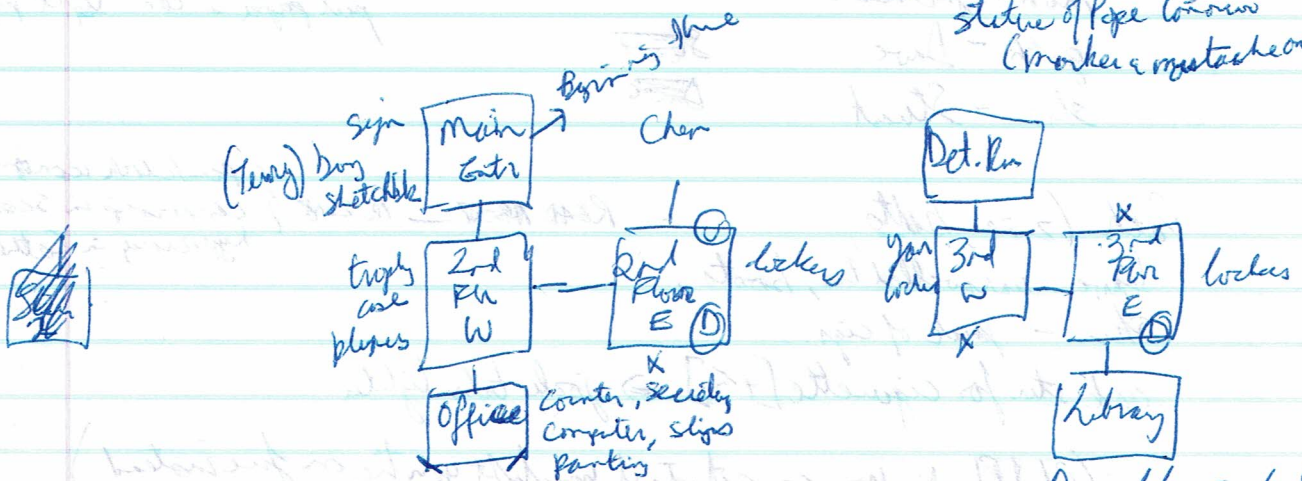 statue of Pope
(marker a mustache on
Chem
sign
Main
Entr
(Terry) Dog
sketchbk
Det. Rm
trophy
case
plaques
2nd
Flr
W
2nd
Floor
E
U
D
lockers
your
locker
3rd
W
X
X
3rd
Floor
E
D
lockers
X
Office
counter, secretary
computer, slips
painting
Library